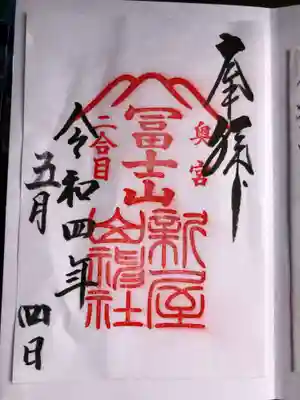 奉拝
奥宮
冨士山
二合目
新屋
山神社
令和四年
五月 四日